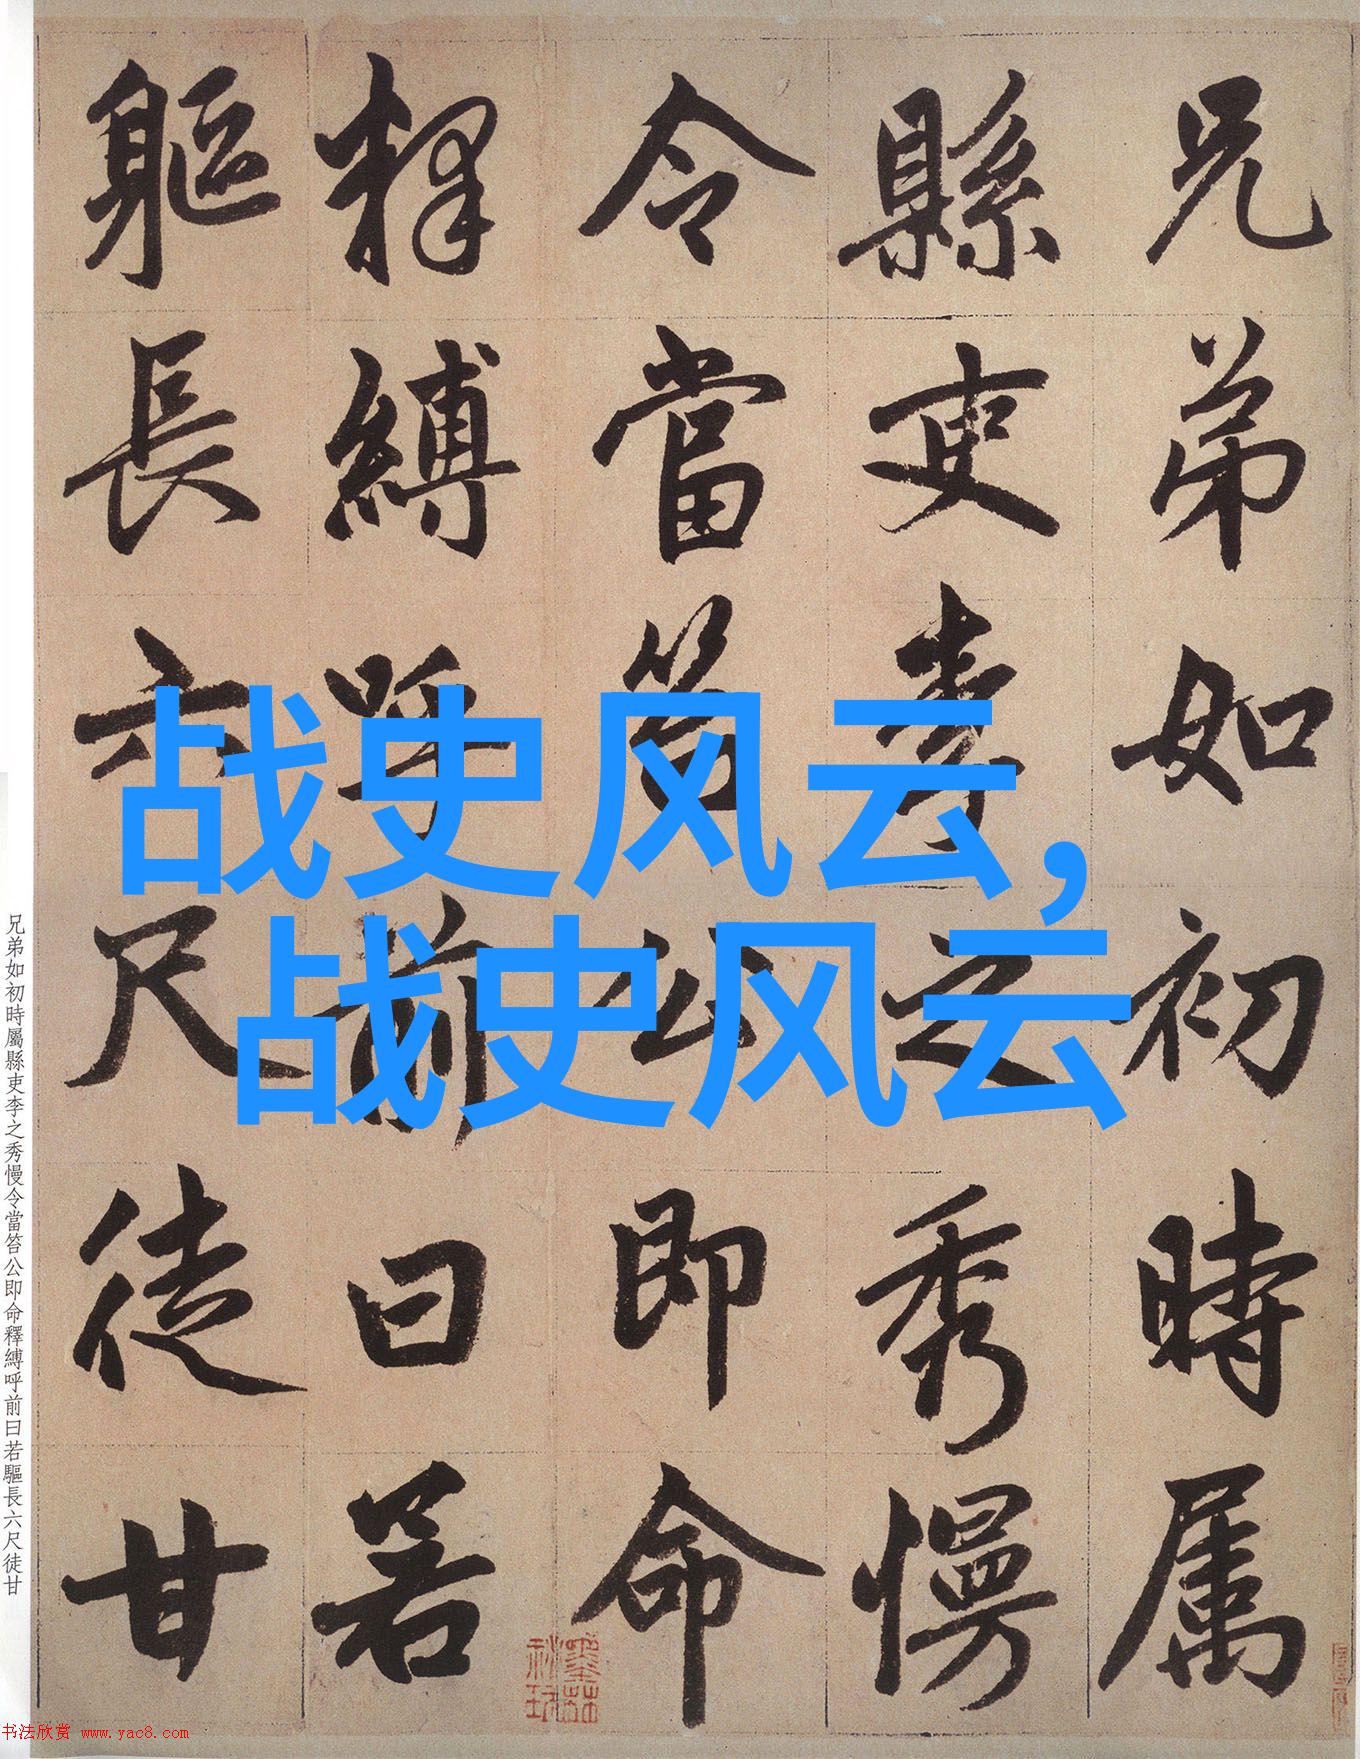 战史风云,
战史风云
兄弟如初時属
縣吏李之秀慢
令當笞公即命
釋縛呼前曰若
軀長六尺徒甘
兄弟如初時屬縣吏李之秀慢令當笞公即命釋縛呼前曰若驅長六尺徒甘
书法欣赏 www.yac8.com